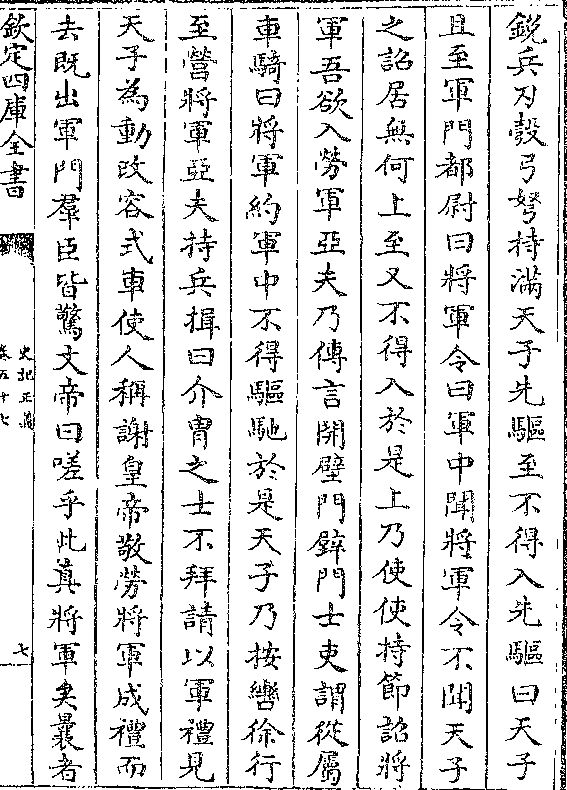 鋭兵刃彀弓弩持滿天子先驅至不得入先驅曰天子
且至軍門都尉曰將軍令曰軍中聞將軍令不聞天子
之詔居無何上至又不得入於是上乃使使持節詔將
軍吾欲入勞軍亞夫乃傳言開壁門壁門士吏謂從屬
車騎曰將軍約軍中不得驅馳於是天子乃按轡徐行
至營將軍亞夫持兵揖曰介胄之士不拜請以軍禮見
天子為動改容式車使人稱謝皇帝敬勞將軍成禮而
去既出軍門羣臣皆驚文帝曰嗟乎此真將軍矣曩者
欽定四庫全書
史記正義
卷五十七
七